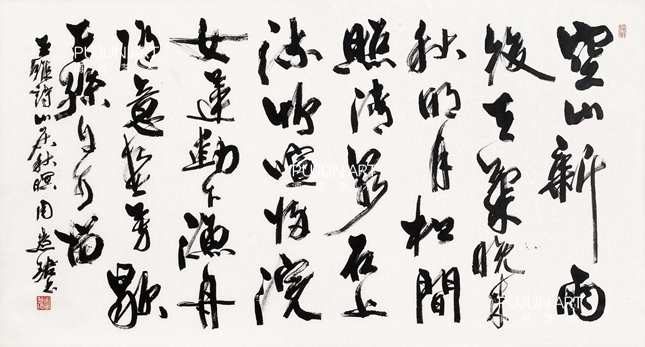 空山新雨
後天氣晚来
秋明月松間
照清泉石上
流竹喧歸浣
女蓮動下漁舟
随意春芳歇
王孫自可留
王維詩山居秋暝周
PUJUN ART
PUJUN ART
PUJUN ART